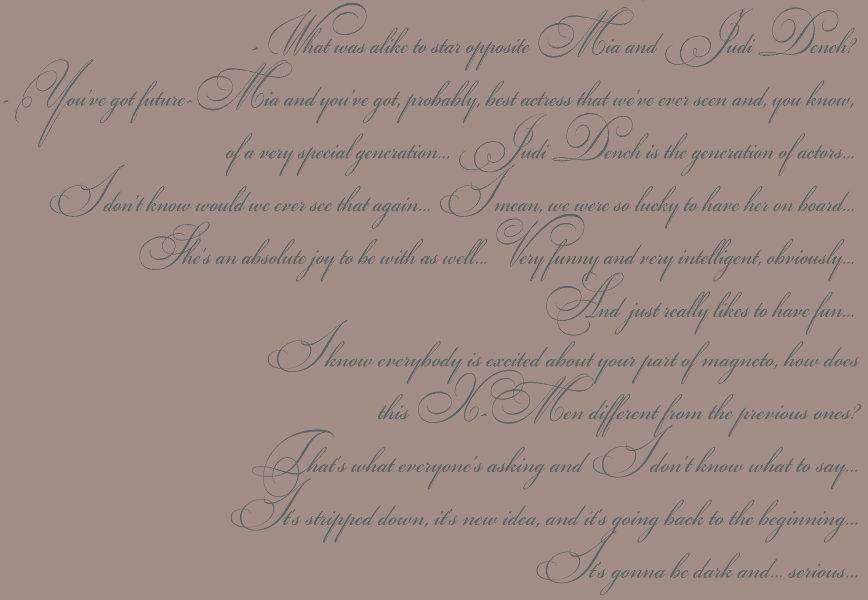 - What was alike to star opposite Mia and Judi Dench?
- You've got future- Mia and you've got, probably, best actress that we've ever seen and, you know,
of a very special generation... Judi Dench is the generation of actors...
I don't know would we ever see that again... I mean, we were so lucky to have her on board...
She's an absolute joy to be with as well... Very funny and very intelligent, obviously...
And just really likes to have fun...
I know everybody is excited about your part of magneto, how does
this X-Men different from the previous ones?
That's what everyone's asking and I don't know what to say...
It's stripped down, it's new idea, and it's going back to the beginning...
It's gonna be dark and... serious...